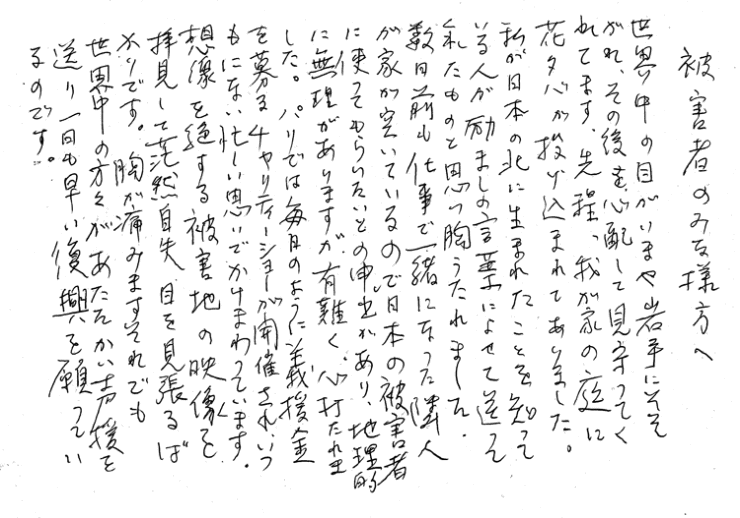 被害者のみな様方へ
世界中の目がいまや岩手にそそ
がれ、その後を心配して見守ってく
れてます。先程、我が家の庭に
花タバが投げ込まれてありました。
私が日本の北に生まれたことを知って
いる人が励ましの言葉によせて送って
くれたものと思い胸うたれました。
数日前も仕事で一緒になった隣人
が家が空いているので日本の被害者
に使ってもらいたいとの申出があり、地理的
に無理がありますが、有難く、心打たれま
した。パリでは毎日のように義援金
を募るチャリティーショーが開催され、いつ
もにない忙しい思いでかけまわっています。
想像を絶する被害地の映像を
拝見して茫然自失 目を見張るば
かりです。胸が痛みますそれでも
世界中の方々があたたかい声援を
送り一日も早い復興を願ってい
るのです。